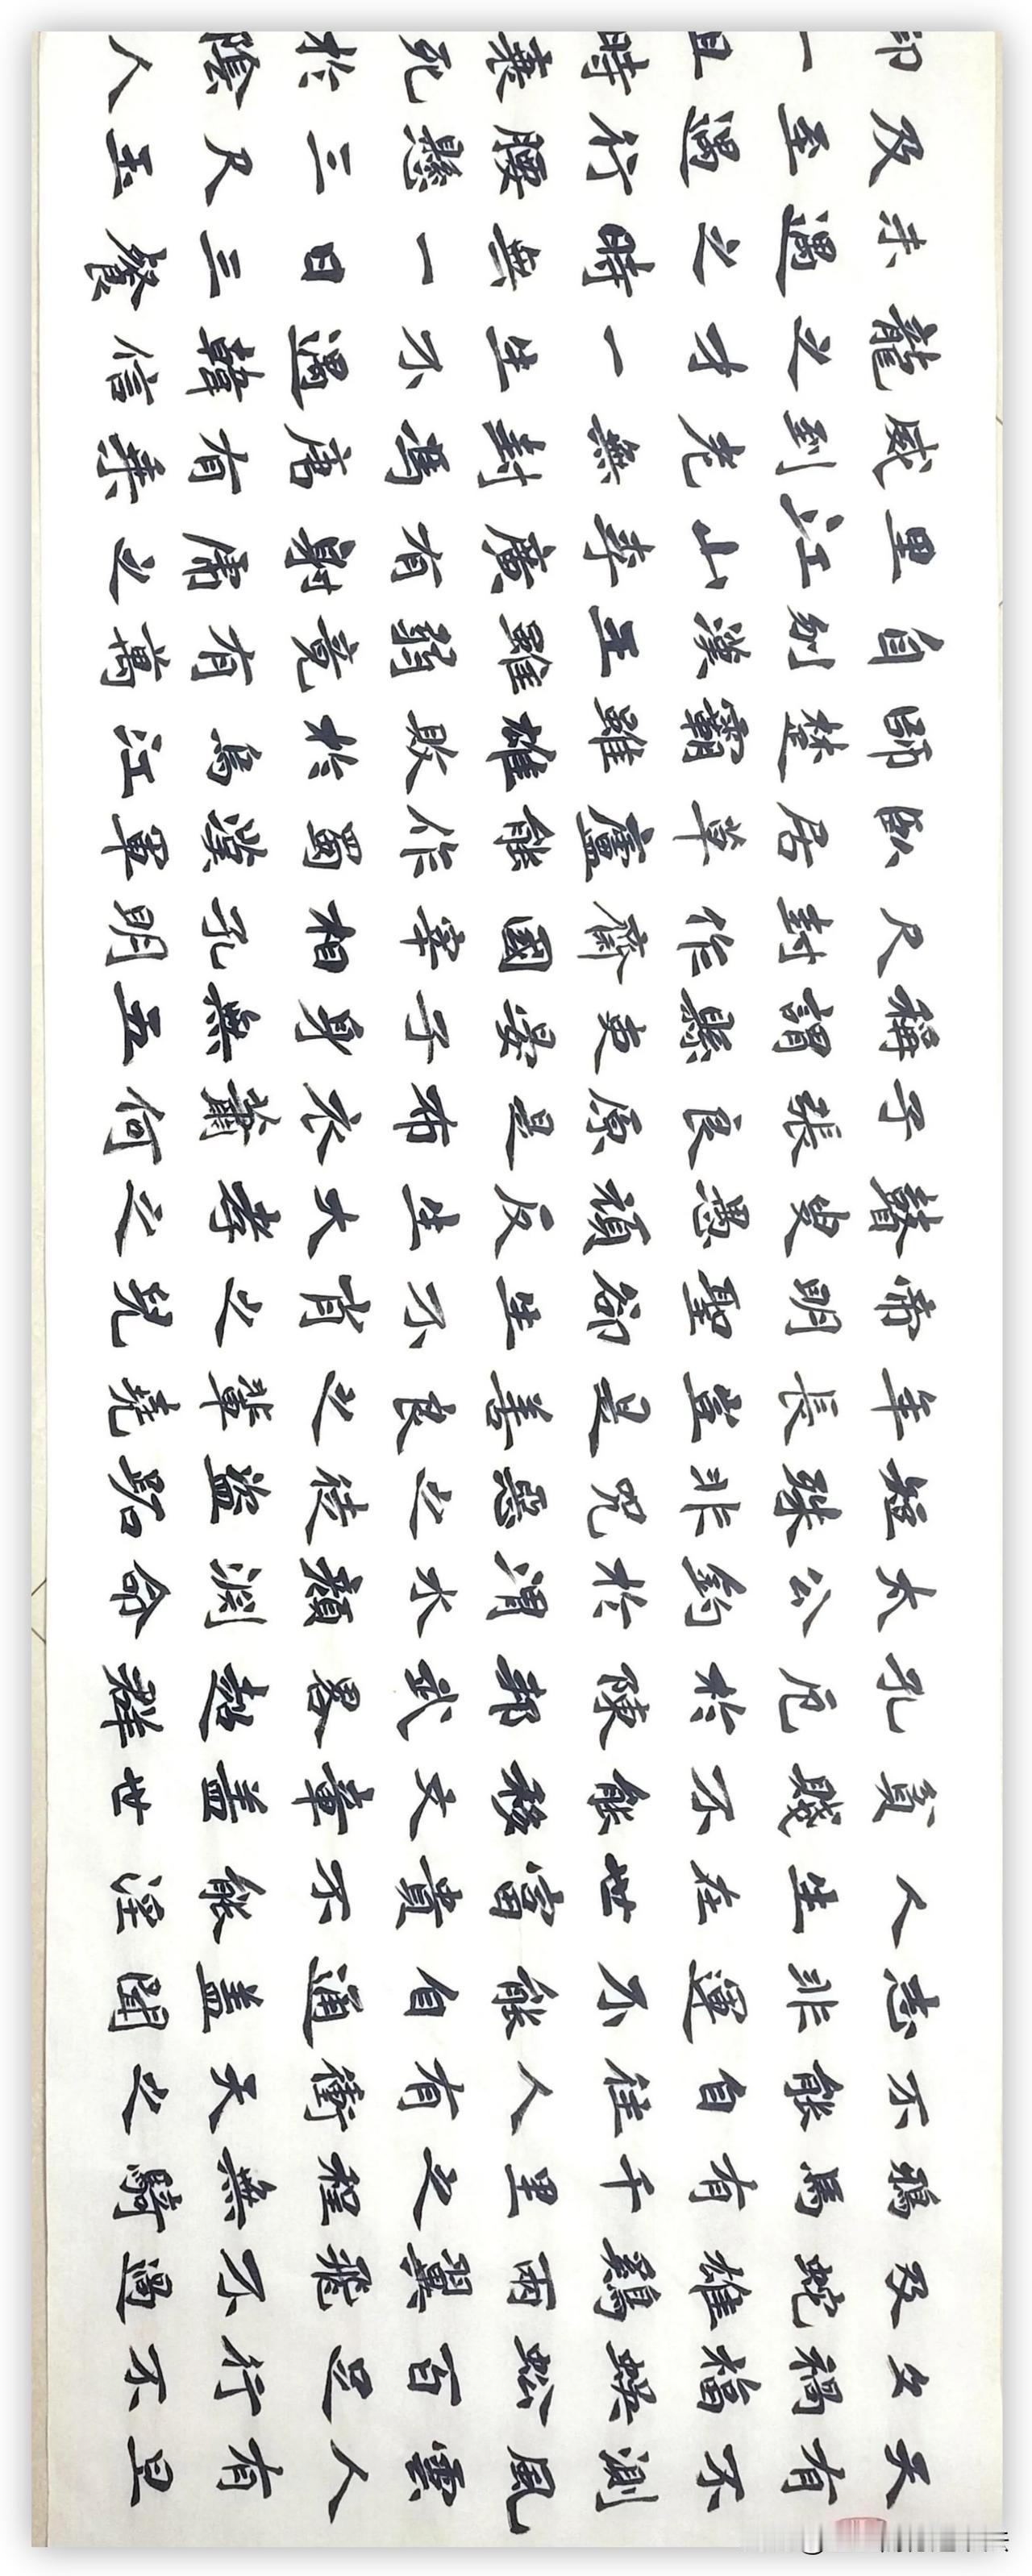 天有不測風雲人有旦
夕禍福蜈蚣百足行不
及蛇雄鷄兩翼飛不過
鴉馬有千里之程無騎
不能自往人有衝天之
志非運不能自通蓋聞
人生在世富貴不能淫
貧賤不能移文章蓋世
孔厄於陳邦武畧超群
太公釣於渭水顏淵命
短殊非兇惡之徒盜跖
年長豈是善良之輩堯
帝明聖卻生不肖之兒
瞽叟愚頑反生大孝之
子張良原是布衣蕭何
稱謂縣吏晏子身無五
尺封作齊國宰相孔明
臥居草廬能作蜀漢軍
師楚霸雖雄敗於烏江
自刎漢王雖弱竟有萬
里江山李廣有射虎之
威到老無封馮唐有乘
龍之才一生不遇韓信
未遇之時無一日三餐
及至遇行腰懸三尺玉
印一旦時衰死於陰人